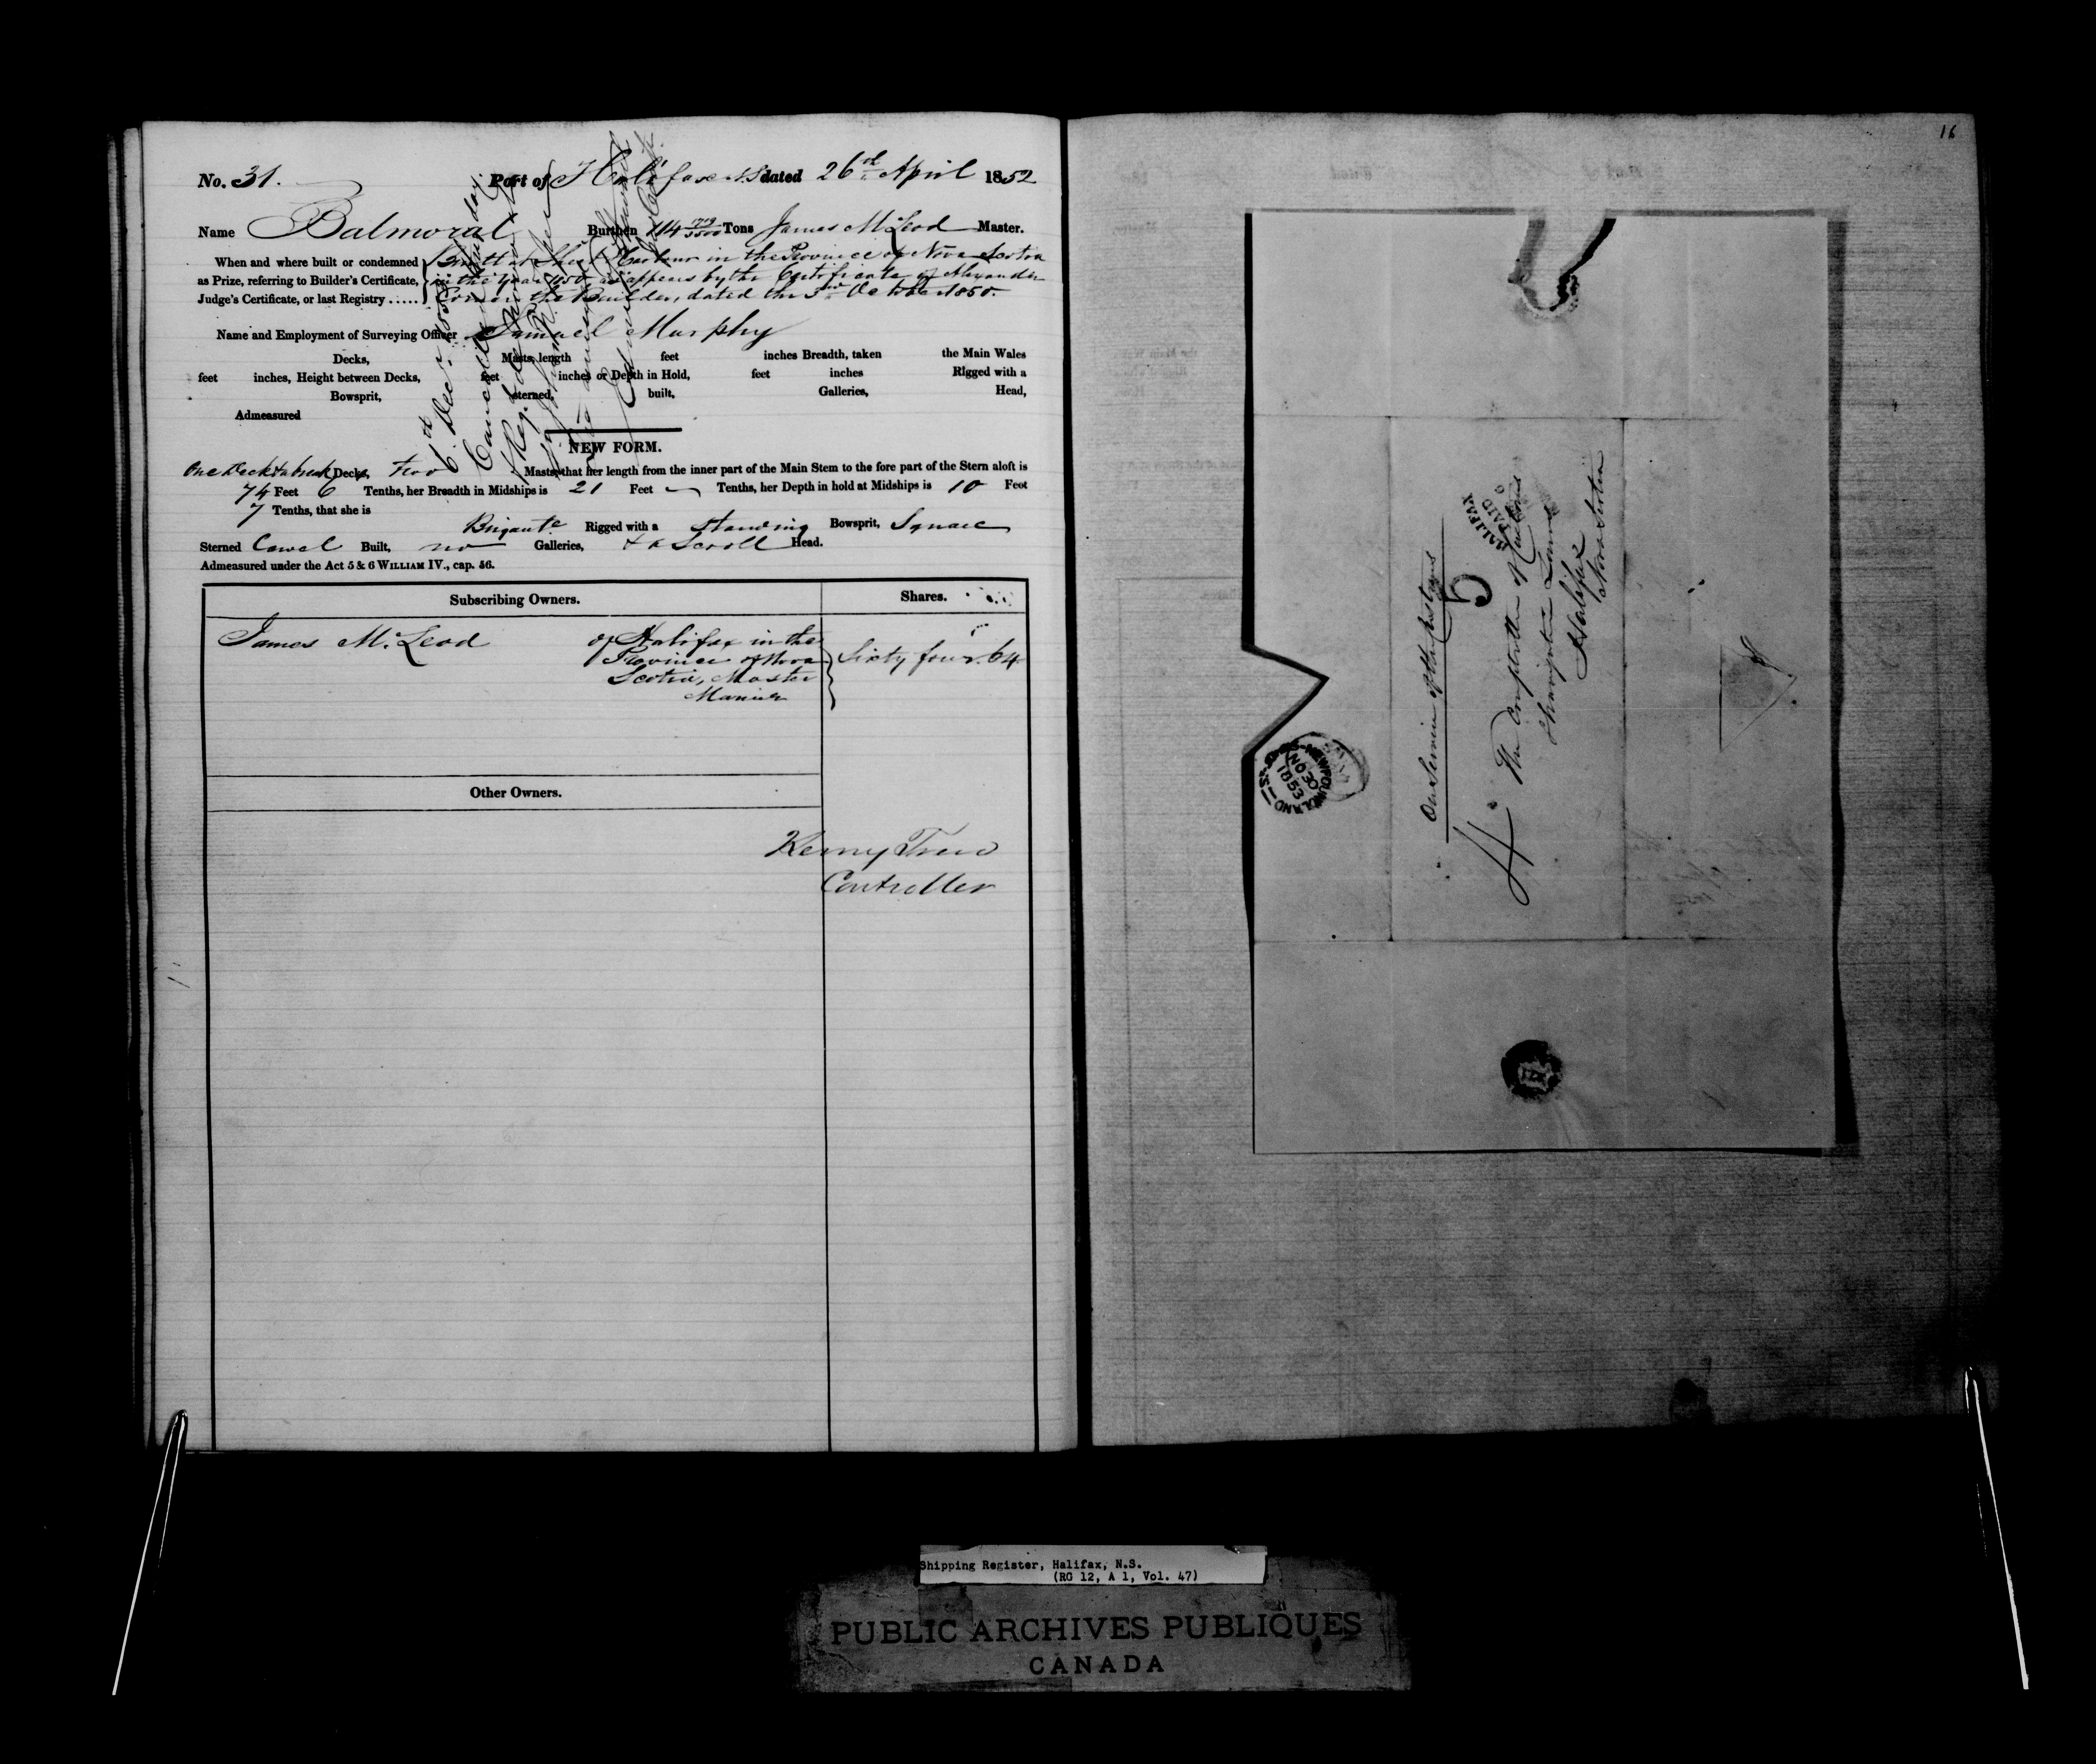 No. 31. Port of Halifax N.S dated 26th April 1852
Name Balmoral Burthen 114 1719/3500 Tons James McLeod Master.
When and where built or condemned
as Prize, referring to Builder's Certificate,
Judge's Certificate, or last Registry .....
Built at Harbour in the Province of Nova Scotia
in the year 1850 as appears by the Certificate of Alexander
the Builder, dated the October 1850.
Name and Employment of Surveying Officer Samuel Murphy
Decks, Masts, length feet inches Breadth, taken the Main Wales
feet inches, Height between Decks, feet inches or Depth in Hold, feet inches Rigged with a
Bowsprit, sterned, built, Galleries, Head,
Admeasured
NEW FORM.
One Deck & a break Decks, two Masts, that her length from the inner part of the Main Stem to the fore part of the Stern aloft is
74 Feet 6 Tenths, her Breadth in Midships is 21 Feet — Tenths, her Depth in hold at Midships is 10 Feet
7 Tenths, that she is
Brigante Rigged with a standing Bowsprit, Square
Sterned Carvel Built, no Galleries, & a Scroll Head.
Admeasured under the Act 5 & 6 WILLIAM IV., cap. 56.
Subscribing Owners. Shares.
James McLeod of Halifax in the
Province of Nova
Scotia, Master
Mariner
Sixty four. 64
Other Owners.
Controller
6th Decr
Cancelled
16
On Service of the Customs
HALIFAX
PAID
5
The Comptroller of Customs
Navigation Laws
Halifax
Nova Scotia
NEWFOUNDLAND
NO 30
1853
Shipping Register, Halifax, N.S.
(RG 12, A 1, Vol. 47)
PUBLIC ARCHIVES PUBLIQUES
CANADA